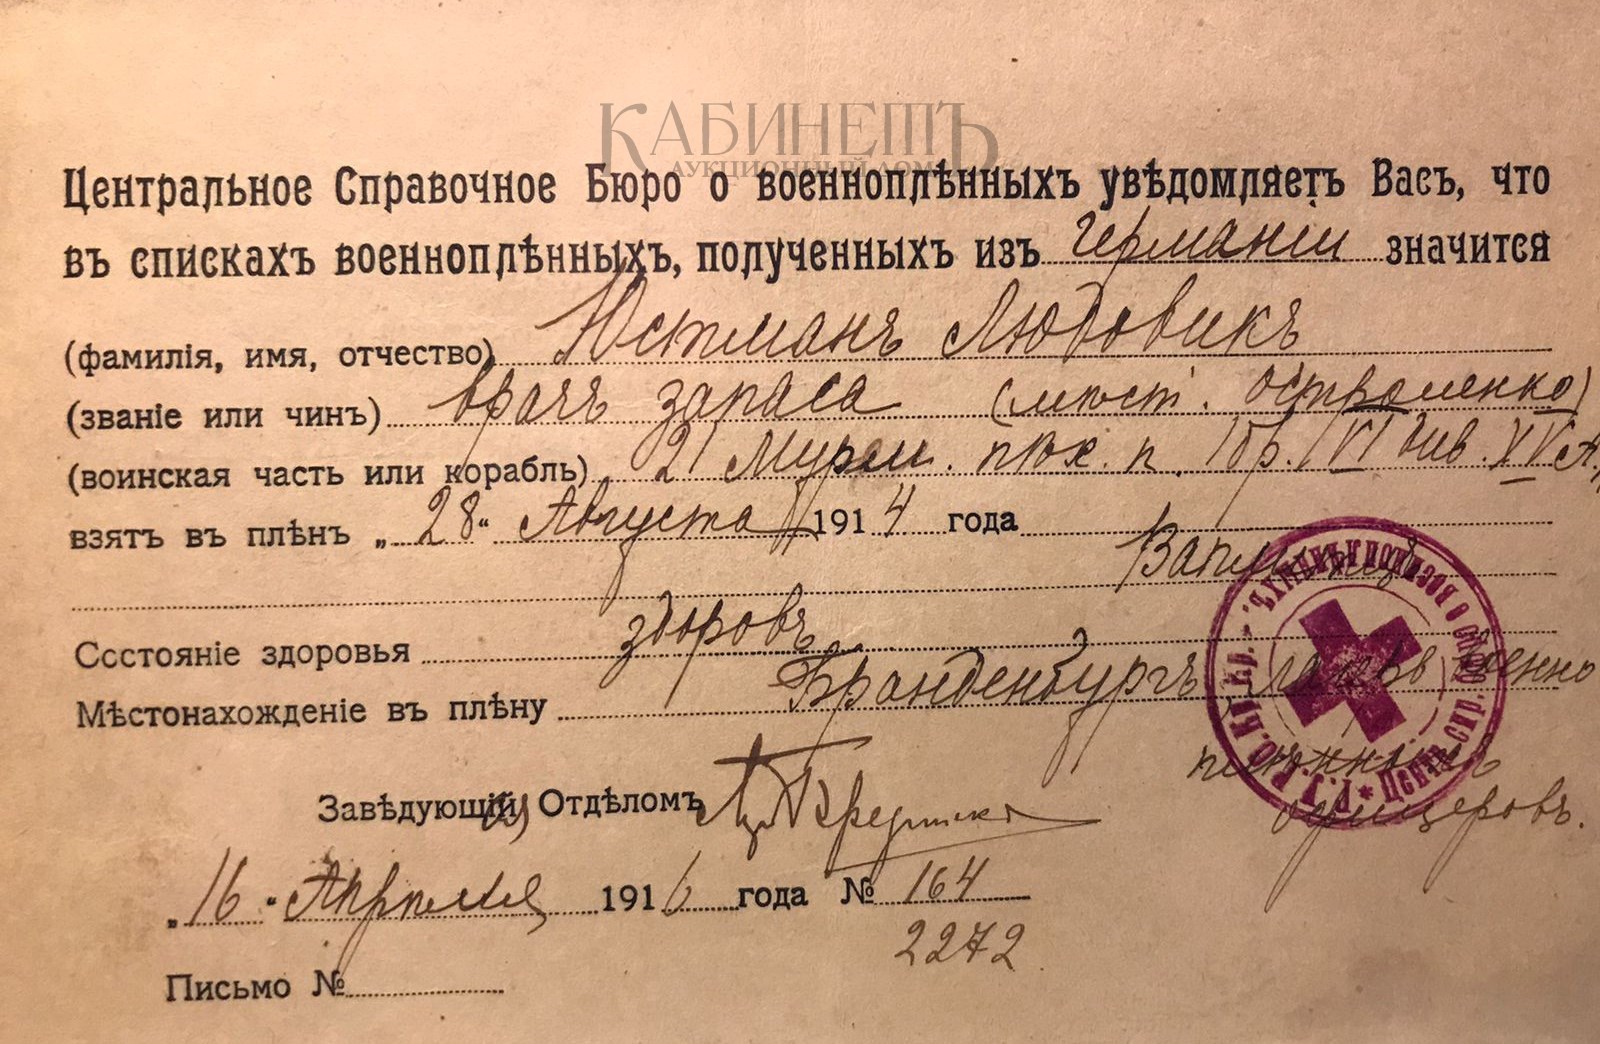 КАБИНЕТЪ
АУКЦИОННЫЙ ДОМ
Центральное Справочное Бюро о военноплѣнныхъ увѣдомляетъ Васъ, что
въ спискахъ военноплѣнныхъ, полученныхъ изъ Германіи значится
(фамилія, имя, отчество) Юстманъ Людовикъ
(званіе или чинъ) врачъ запаса (мѣст. Остроленко)
(воинская часть или корабль) 21 Муром. пѣх. п. 1 бр. VI див. XV А.
взятъ въ плѣнъ „28“ Августа 1914 года
Ссстояніе здоровья здоровъ
Мѣстонахожденіе въ плѣну Бранденбургъ лагерь военно
плѣнныхъ
офицеровъ.
Завѣдующій Отдѣломъ
„16“ Апрѣля 1916 года № 164
2272
Письмо №